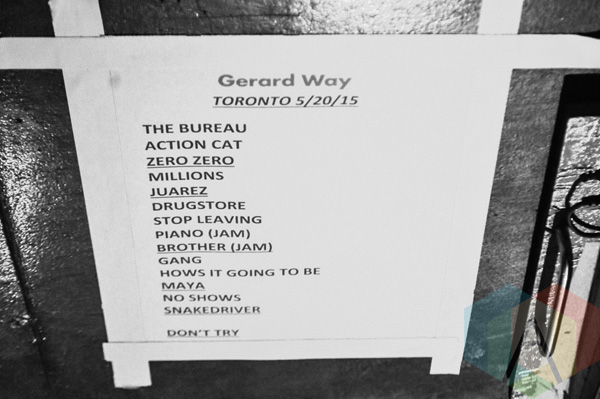 Gerard Way
TORONTO 5/20/15
THE BUREAU
ACTION CAT
ZERO ZERO
MILLIONS
JUAREZ
DRUGSTORE
STOP LEAVING
PIANO (JAM)
BROTHER (JAM)
GANG
HOWS IT GOING TO BE
MAYA
NO SHOWS
SNAKEDRIVER
DON'T TRY